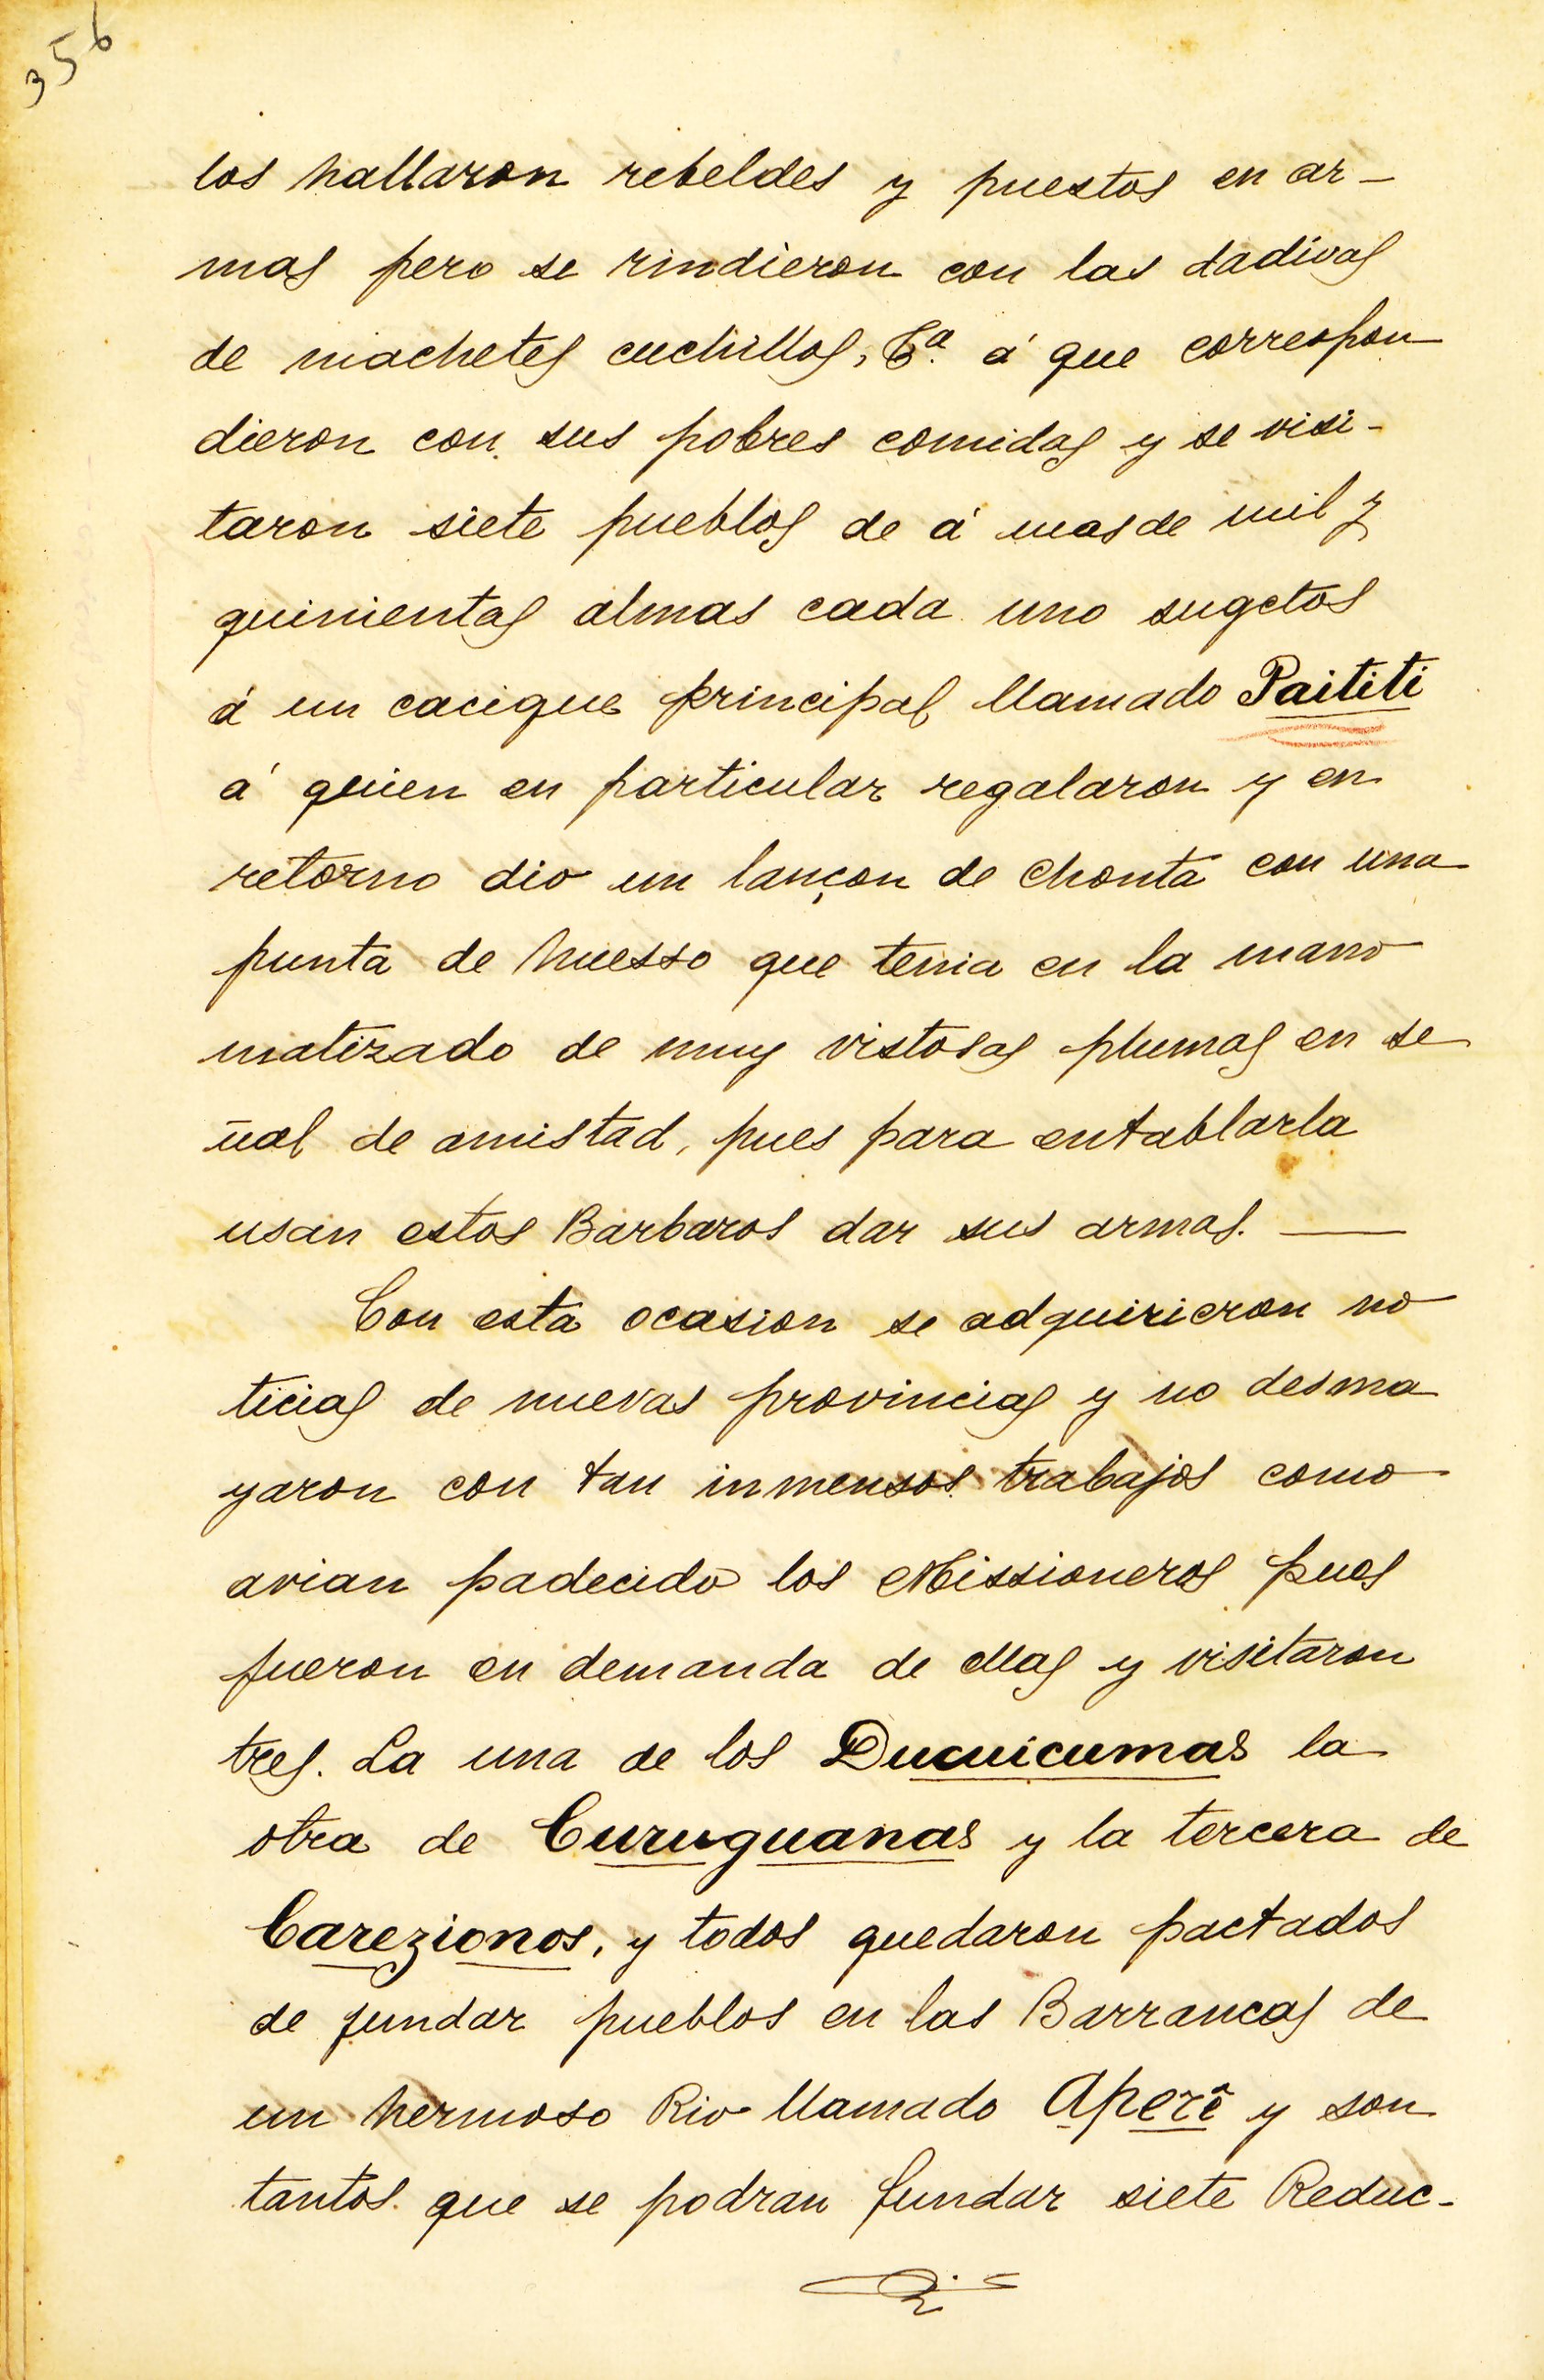 356
los hallaron rebeldes y puestos en ar-
mas pero se rindieron con las dadivas
de machetes cuchillos, &ª. á que correspon
dieron con sus pobres comidas y se visi-
taron siete pueblos de á mas de mil y
quinientas almas cada uno sugetos
á un cacique principal llamado Paititi
á quien en particular regalaron y en
retorno dio un lançon de chonta con una
punta de huesso que tenia en la mano
matizado de muy vistosas plumas en se
ñal de amistad, pues para entablarla
usan estos Barbaros dar sus armas. —
Con esta ocasion se adquirieron no
ticias de nuevas provincias y no desma
yaron con tan inmensos trabajos como
avian padecido los Missioneros pues
fueron en demanda de ellas y visitaron
tres. La una de los Ducuicumas la
otra de Curuguanas y la tercera de
Carezionos, y todos quedaron pactados
de fundar pueblos en las Barrancas de
un hermoso Rio llamado Aperê y son
tantos que se podran fundar siete Reduc-